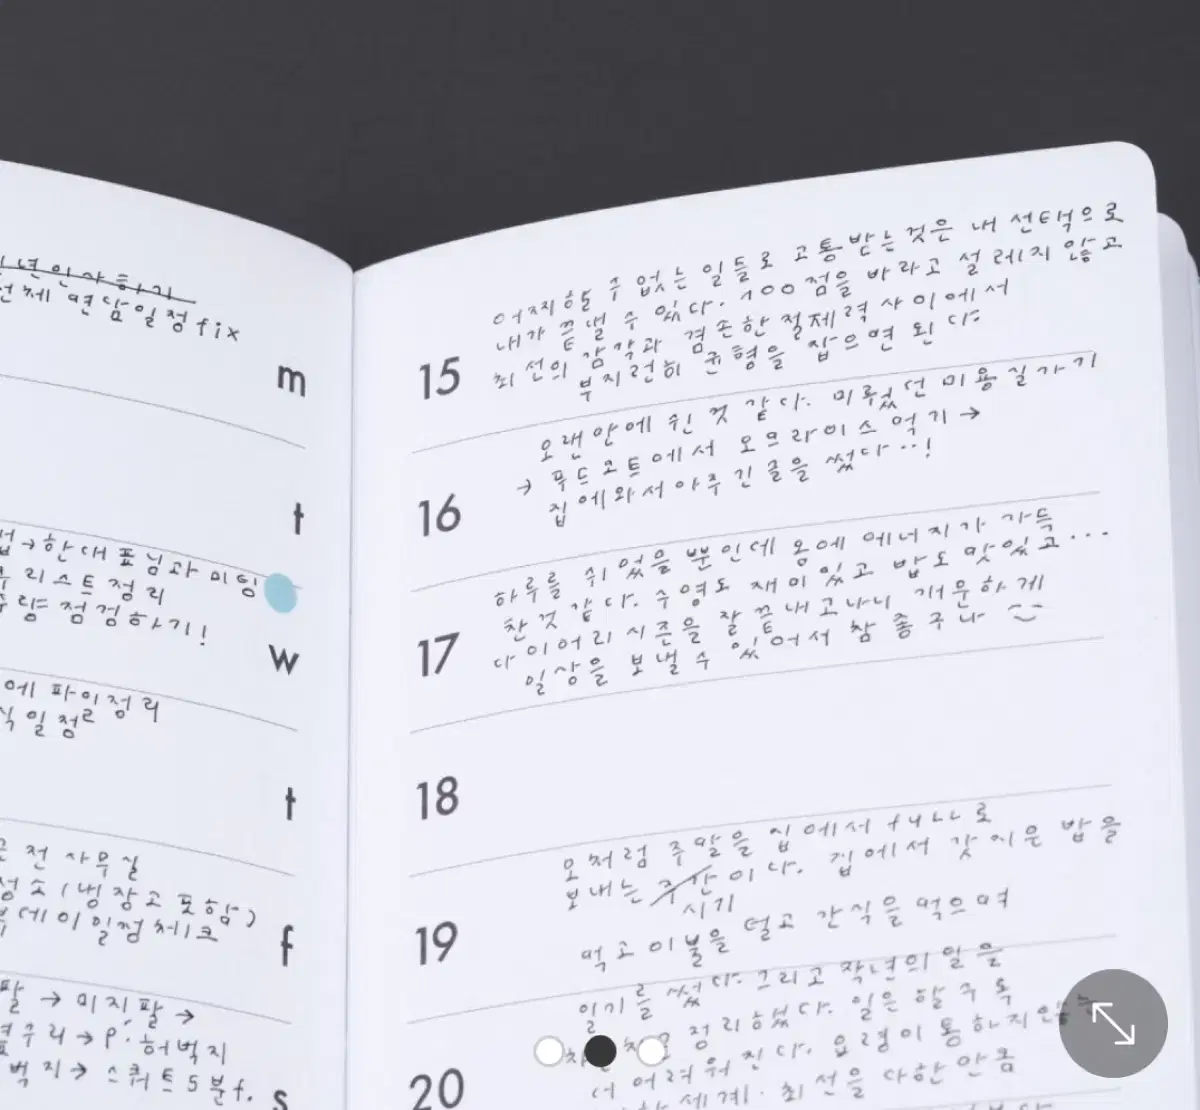 년인사하기
면담일정fix
m
t
→한대표님과 미팅
리스트정리
점검하기!
w
에 파일정리
일정
t
전 사무실
(냉장고 포함)
데이일정체크
f
→ 미지팔 →
→ P. 허벅지
벅지→ 스쿼트5분f.
s
어찌할 수 없는 일들로 고통받는 것은 내 선택으로
내가 끝낼 수 있다. 100점을 바라고 설레지 않고
15
최선의 감각과 겸손한 절제력 사이에서
부지런히 균형을 잡으면 된다.
오랜만에 쉰 것 같다. 미뤘던 미용실가기
→ 푸드코트에서 오므라이스 먹기 →
16
집에와서 아주 긴 글을 썼다..!
하루를 쉬었을 뿐인데 몸에 에너지가 가득
찬 것 같다. 수영도 재미있고 밥도 맛있고...
17
다이어리 시즌을 잘 끝내고나니 개운하게
일상을 보낼 수 있어서 참 좋구나
18
모처럼 주말을 집에서 full로
보내는 주간이다. 집에서 갓 지은 밥을
시기
19
먹고 이불을 덮고 간식을 먹으며
일기를 썼다. 그리고 작년의 일을
정리했다. 일은 할수록
더 어려워진다. 요령이 통하지않는
20
세계. 최선을 다한 만큼